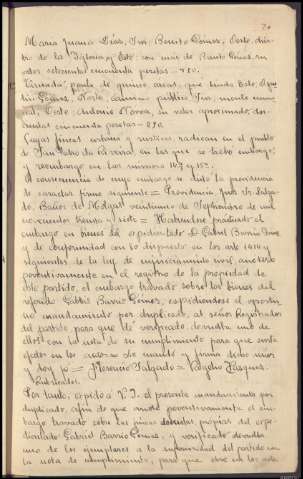 María Juana Diás, Sur Benito Gómez, Oeste, den-
tro de la Victoria y Este con más de Benito Gómez, su
valor setecientas cincuenta pesetas = 750.
quince áreas, que linda Este, Agus-
tín Gómez, Norte, camino público, Sur, monte comu-
nal, Oeste Antonio Novoa, su valor aproximado, dos-
cientas cincuenta pesetas = 250.
Cuyas fincas urbana y rústica radican en el pueblo
de San Pedro da Ribeira, en las que se hizo embargo,
y reembargo en los números 14º y 15º.
A consecuencia de cuyo embargo se dictó la providencia
de carácter firme siguiente = Providencia, Juez Sr. Salga-
do. Baños de Molgas veintinueve de Septiembre de mil
novecientos treinta y siete = Habiéndose practicado el
embargo en bienes del expedientado D. Gabriel Barrio Gómez
y de conformidad con lo dispuesto en los arts 1410 y
siguientes de la ley de enjuiciamiento civil, anótese
preventivamente en el registro de la propiedad de
este partido, el embargo trabado sobre los bienes del
referido Gabriel Barrio Gómez, expidiéndose el oportu-
no mandamiento por duplicado, al señor Registrador
del partido para que de verificado, devuelva uno de
ellos con la nota de su cumplimiento para que surta
efectos en los autos = Lo mandó y firma dicho señor
y doy fe = Florencio Salgado = Rogelio Vázquez.
Rubricados.
Por tanto, expido a V.S. el presente mandamiento por
duplicado, a fin de que anote preventivamente el em-
bargo trabado sobre las fincas propias del expe-
dientado Gabriel Barrio Gómez, y verificado devuelva
uno de los ejemplares a la del partido con
la nota de cumplimiento, para que obre en los autos